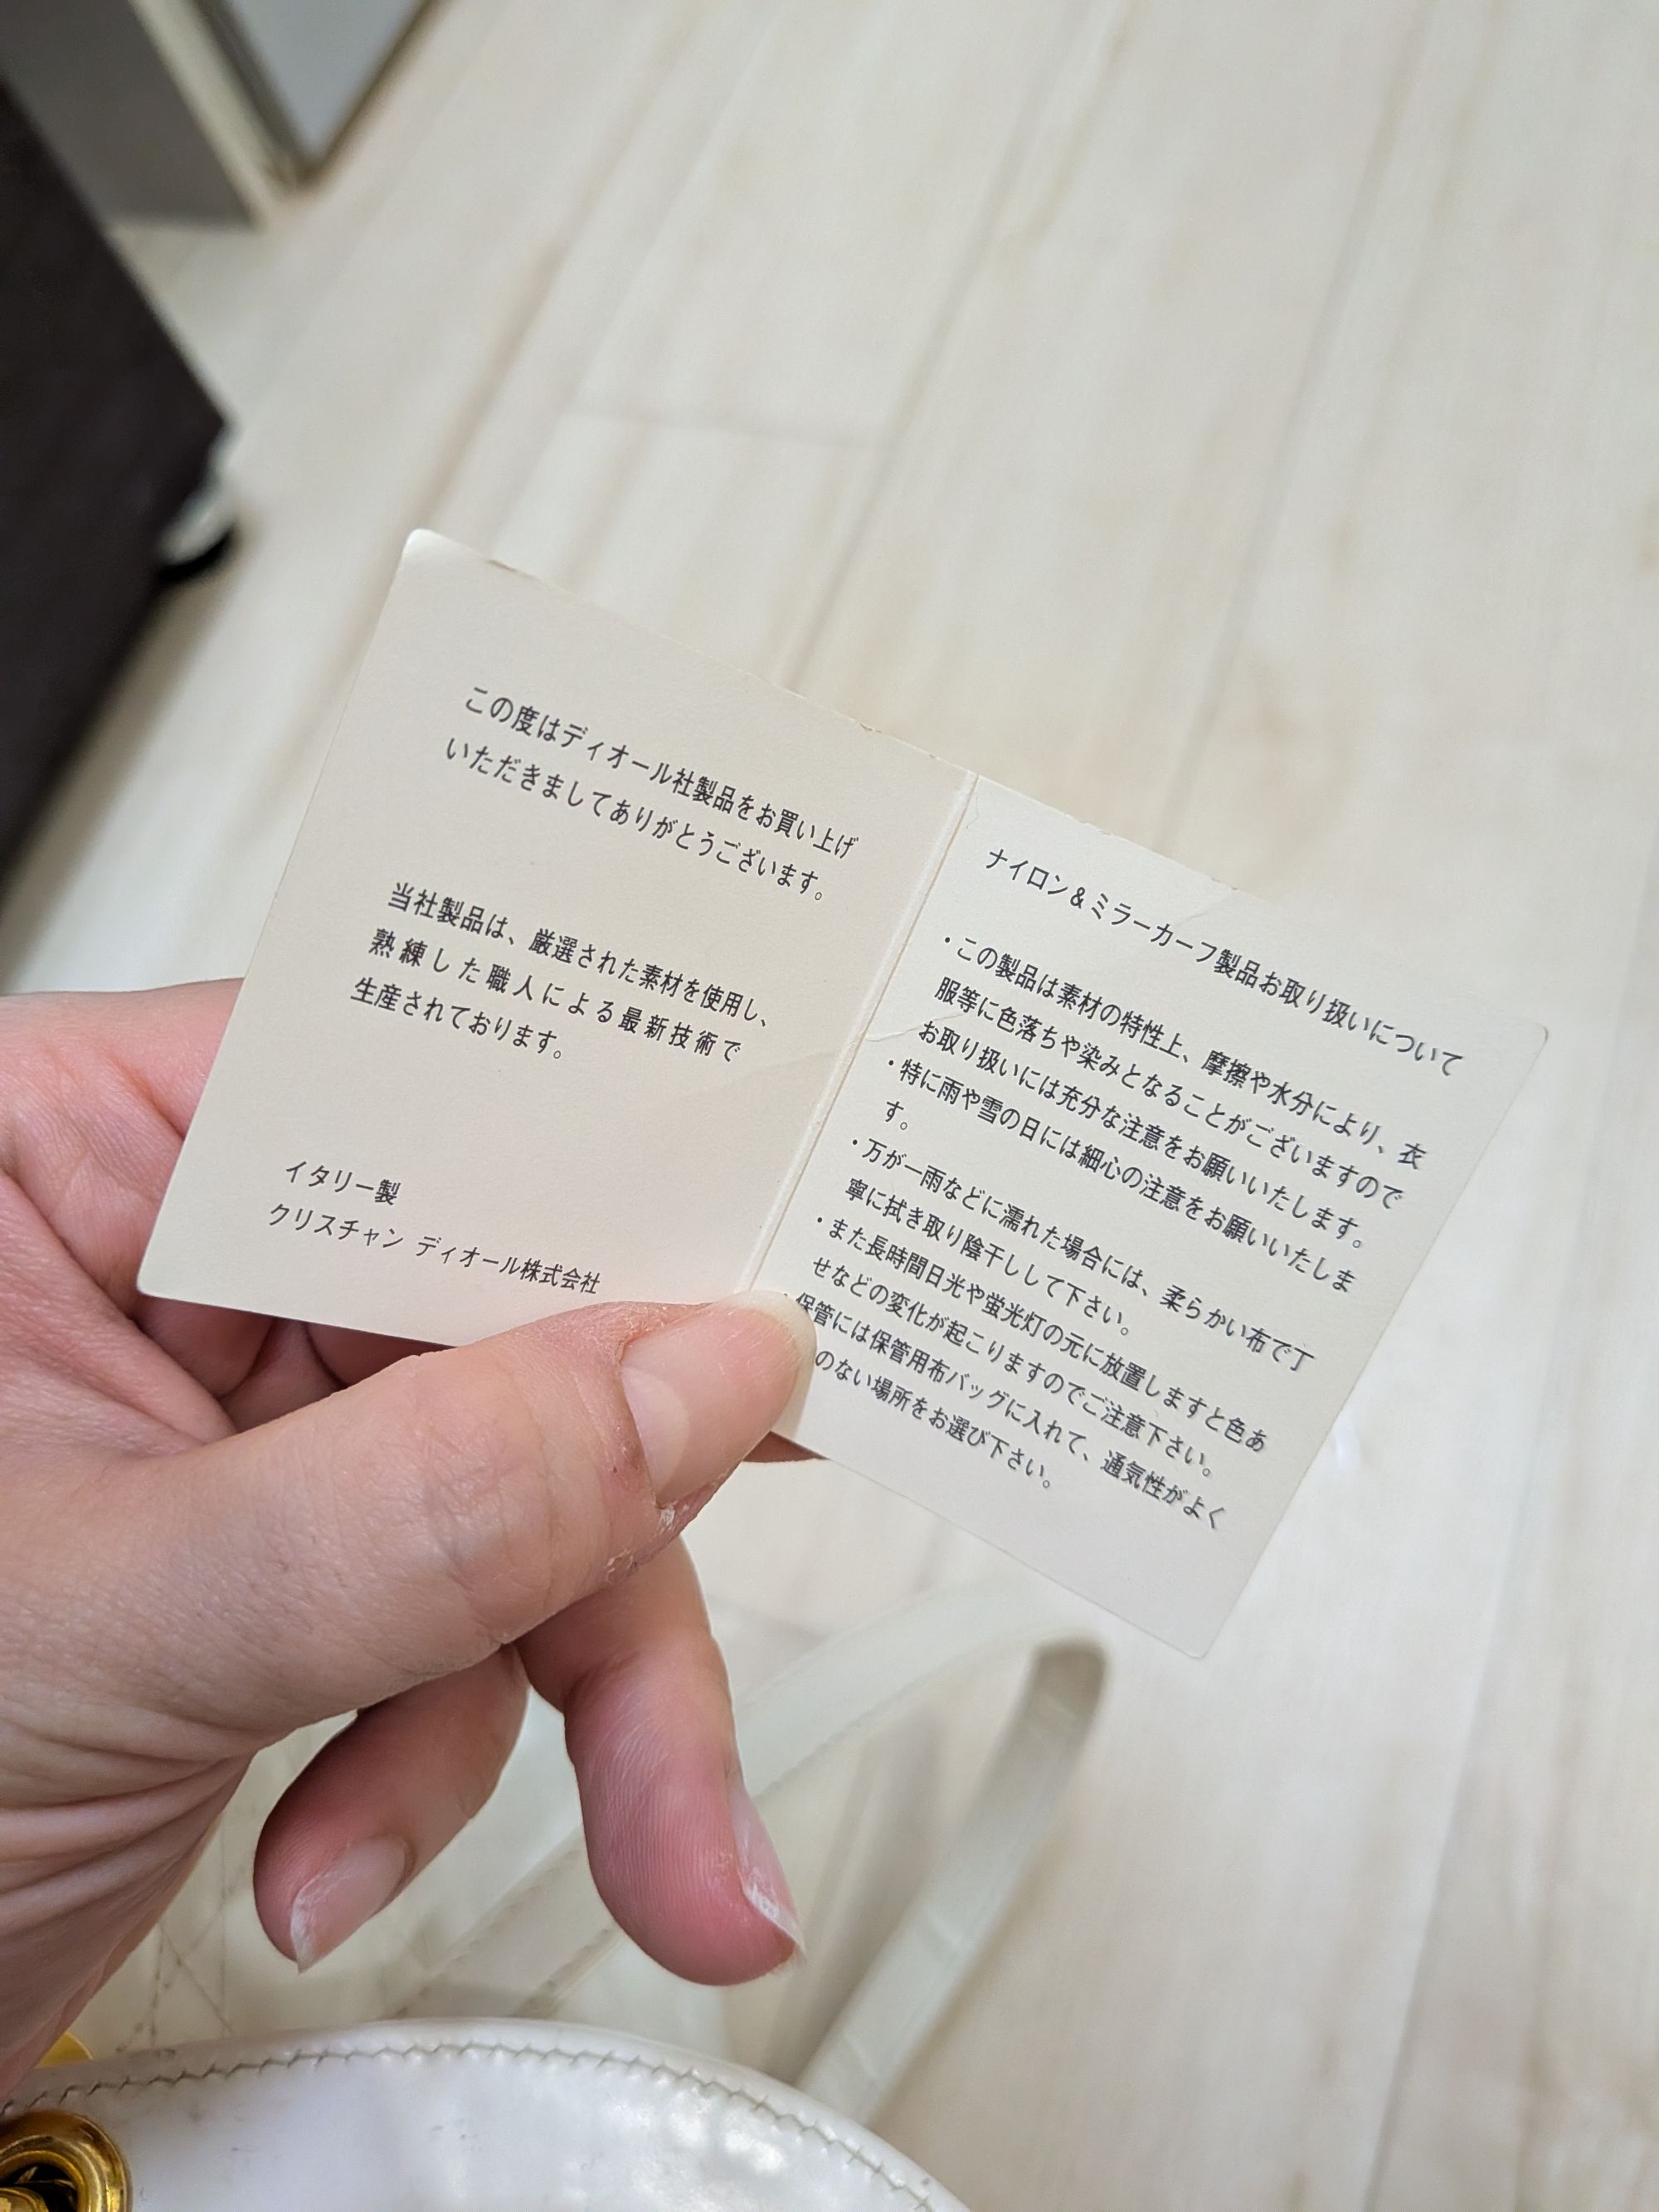 この度はディオール社製品をお買い上げ
いただきましてありがとうございます。
当社製品は、厳選された素材を使用し、
熟練した職人による最新技術で
生産されております。
イタリー製
クリスチャン ディオール株式会社
ナイロン&ミラーカーフ製品お取り扱いについて
・この製品は素材の特性上、摩擦や水分により、衣
服等に色落ちや染みとなることがございますので
お取り扱いには充分な注意をお願いいたします。
・特に雨や雪の日には細心の注意をお願いいたしま
す。
・万が一雨などに濡れた場合には、柔らかい布で丁
寧に拭き取り陰干しして下さい。
・また長時間日光や蛍光灯の元に放置しますと色あ
せなどの変化が起こりますのでご注意下さい。
・保管には保管用布バッグに入れて、通気性がよく
のない場所をお選び下さい。